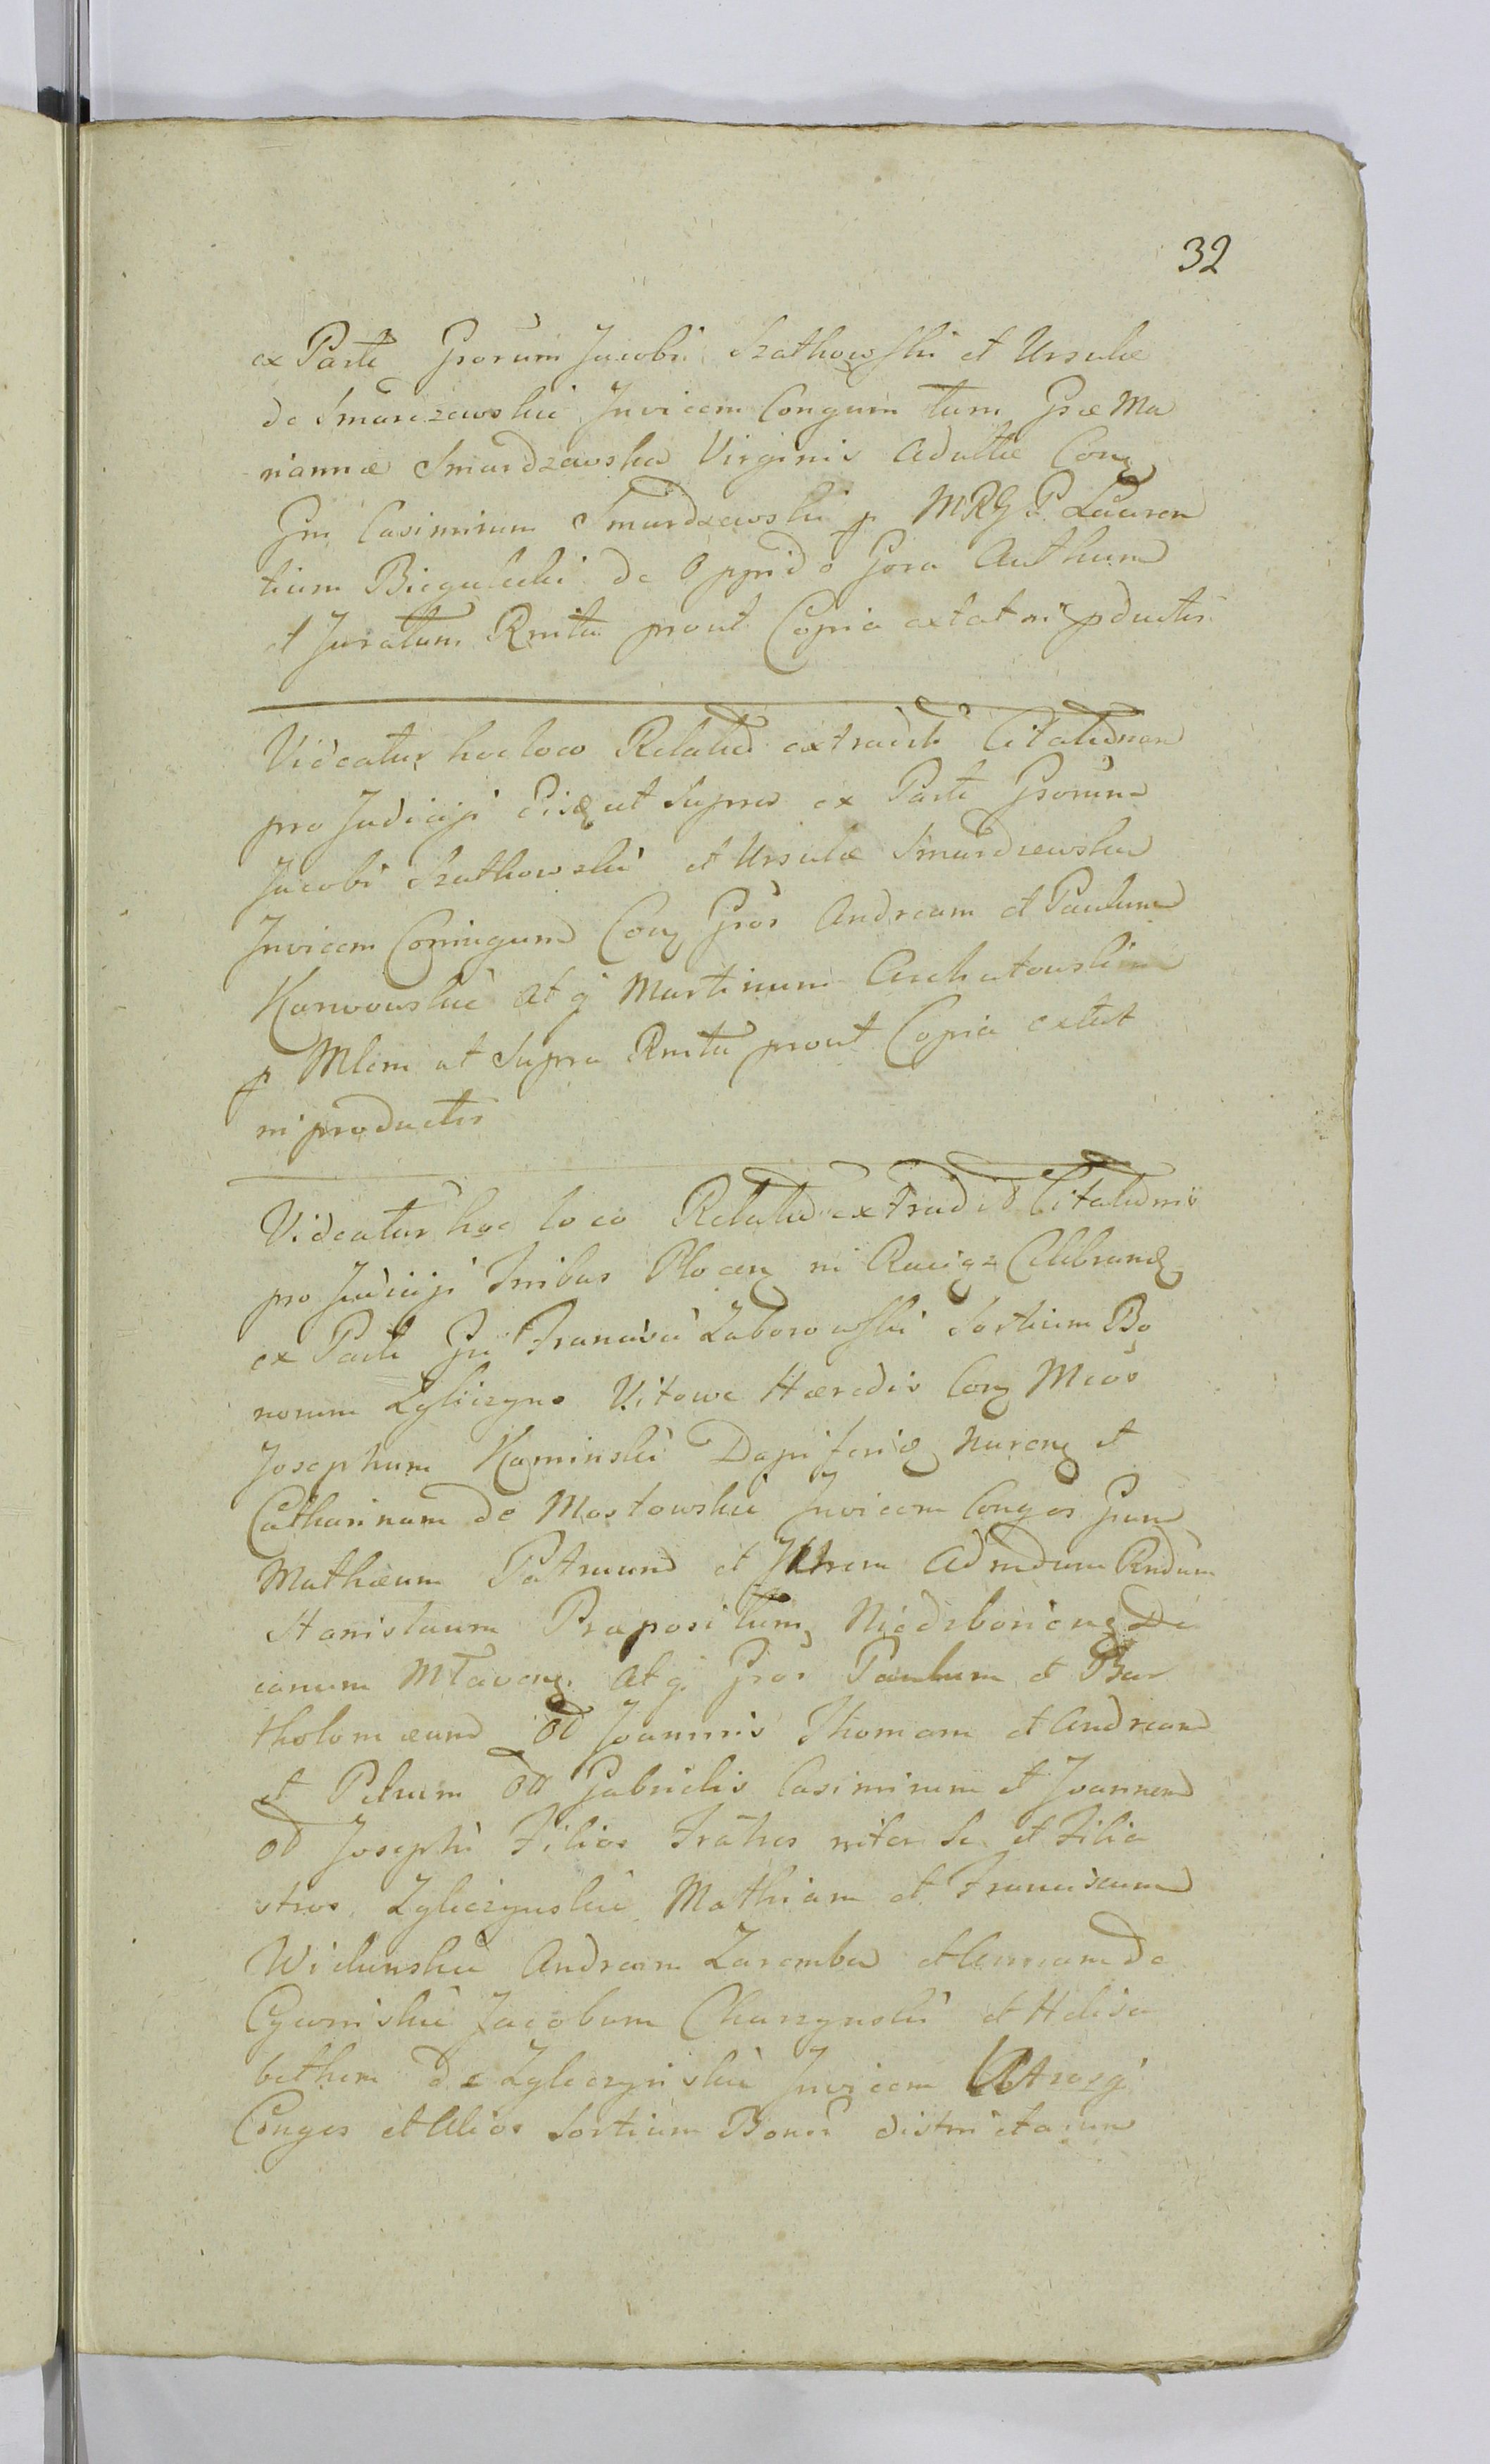 32
ex Parte Grorum Jacobi Szatkowski et Ursulæ
de Smardzewskie Invicem Congum tum Gsæ Ma
riannæ Smardzewska Virginis Adultæ Con
Gm Casimirum Smardzewski p MRG P. Lauren
tium Biegulecki de Oppido Gora Authum
et Juratum Rmitu prout Copia extat in pductis
Videatur hoc loco Relatio extradit Citatiönem
pro Judicijs Eisq ut Supra ex Parte Grorum
Jacobi Szatkowski et Ursulæ Smardzewska
Invicem Conjugum Con Gros Andream et Paulum
Karwowskie atq Martinum
p Mlem ut Supra Rmitu prout Copia extat
in productis
Videatur hoc loco Relatio extradit Citatiönis
pro Judicijs Tribus Plocen in Raciąz Celebrand
ex Parte Gn Francisci Zaborowski Sortium Bo
norum Zgliczyno Vitowe Hæredis Con Mcos
Josephum Kaminski Dapiferid Nuren et
Catharinam de Mostowskie Invicem Conges Gnu
Mathæum Patruum et Admdum Rndum
Stanislaum Præpositum Niedzborien De
canum Mlaven atq Gros Paulum et Bar
tholomæum od Joannis Thomam et Andream
et Petrum od Gabrielis Casimirum et Joannem
od Josephi Filios Fratres inter Se et Filia
stros Zgliczynskie Mathiam et Franciscum
Wielunskie Andream Zaremba et Annam de
Cywinskie Jacobum Charzynski et Helisa
betham de Zgliczynskie Invicem Utrosq
Conges et Alios Sortium Bonor districtarum